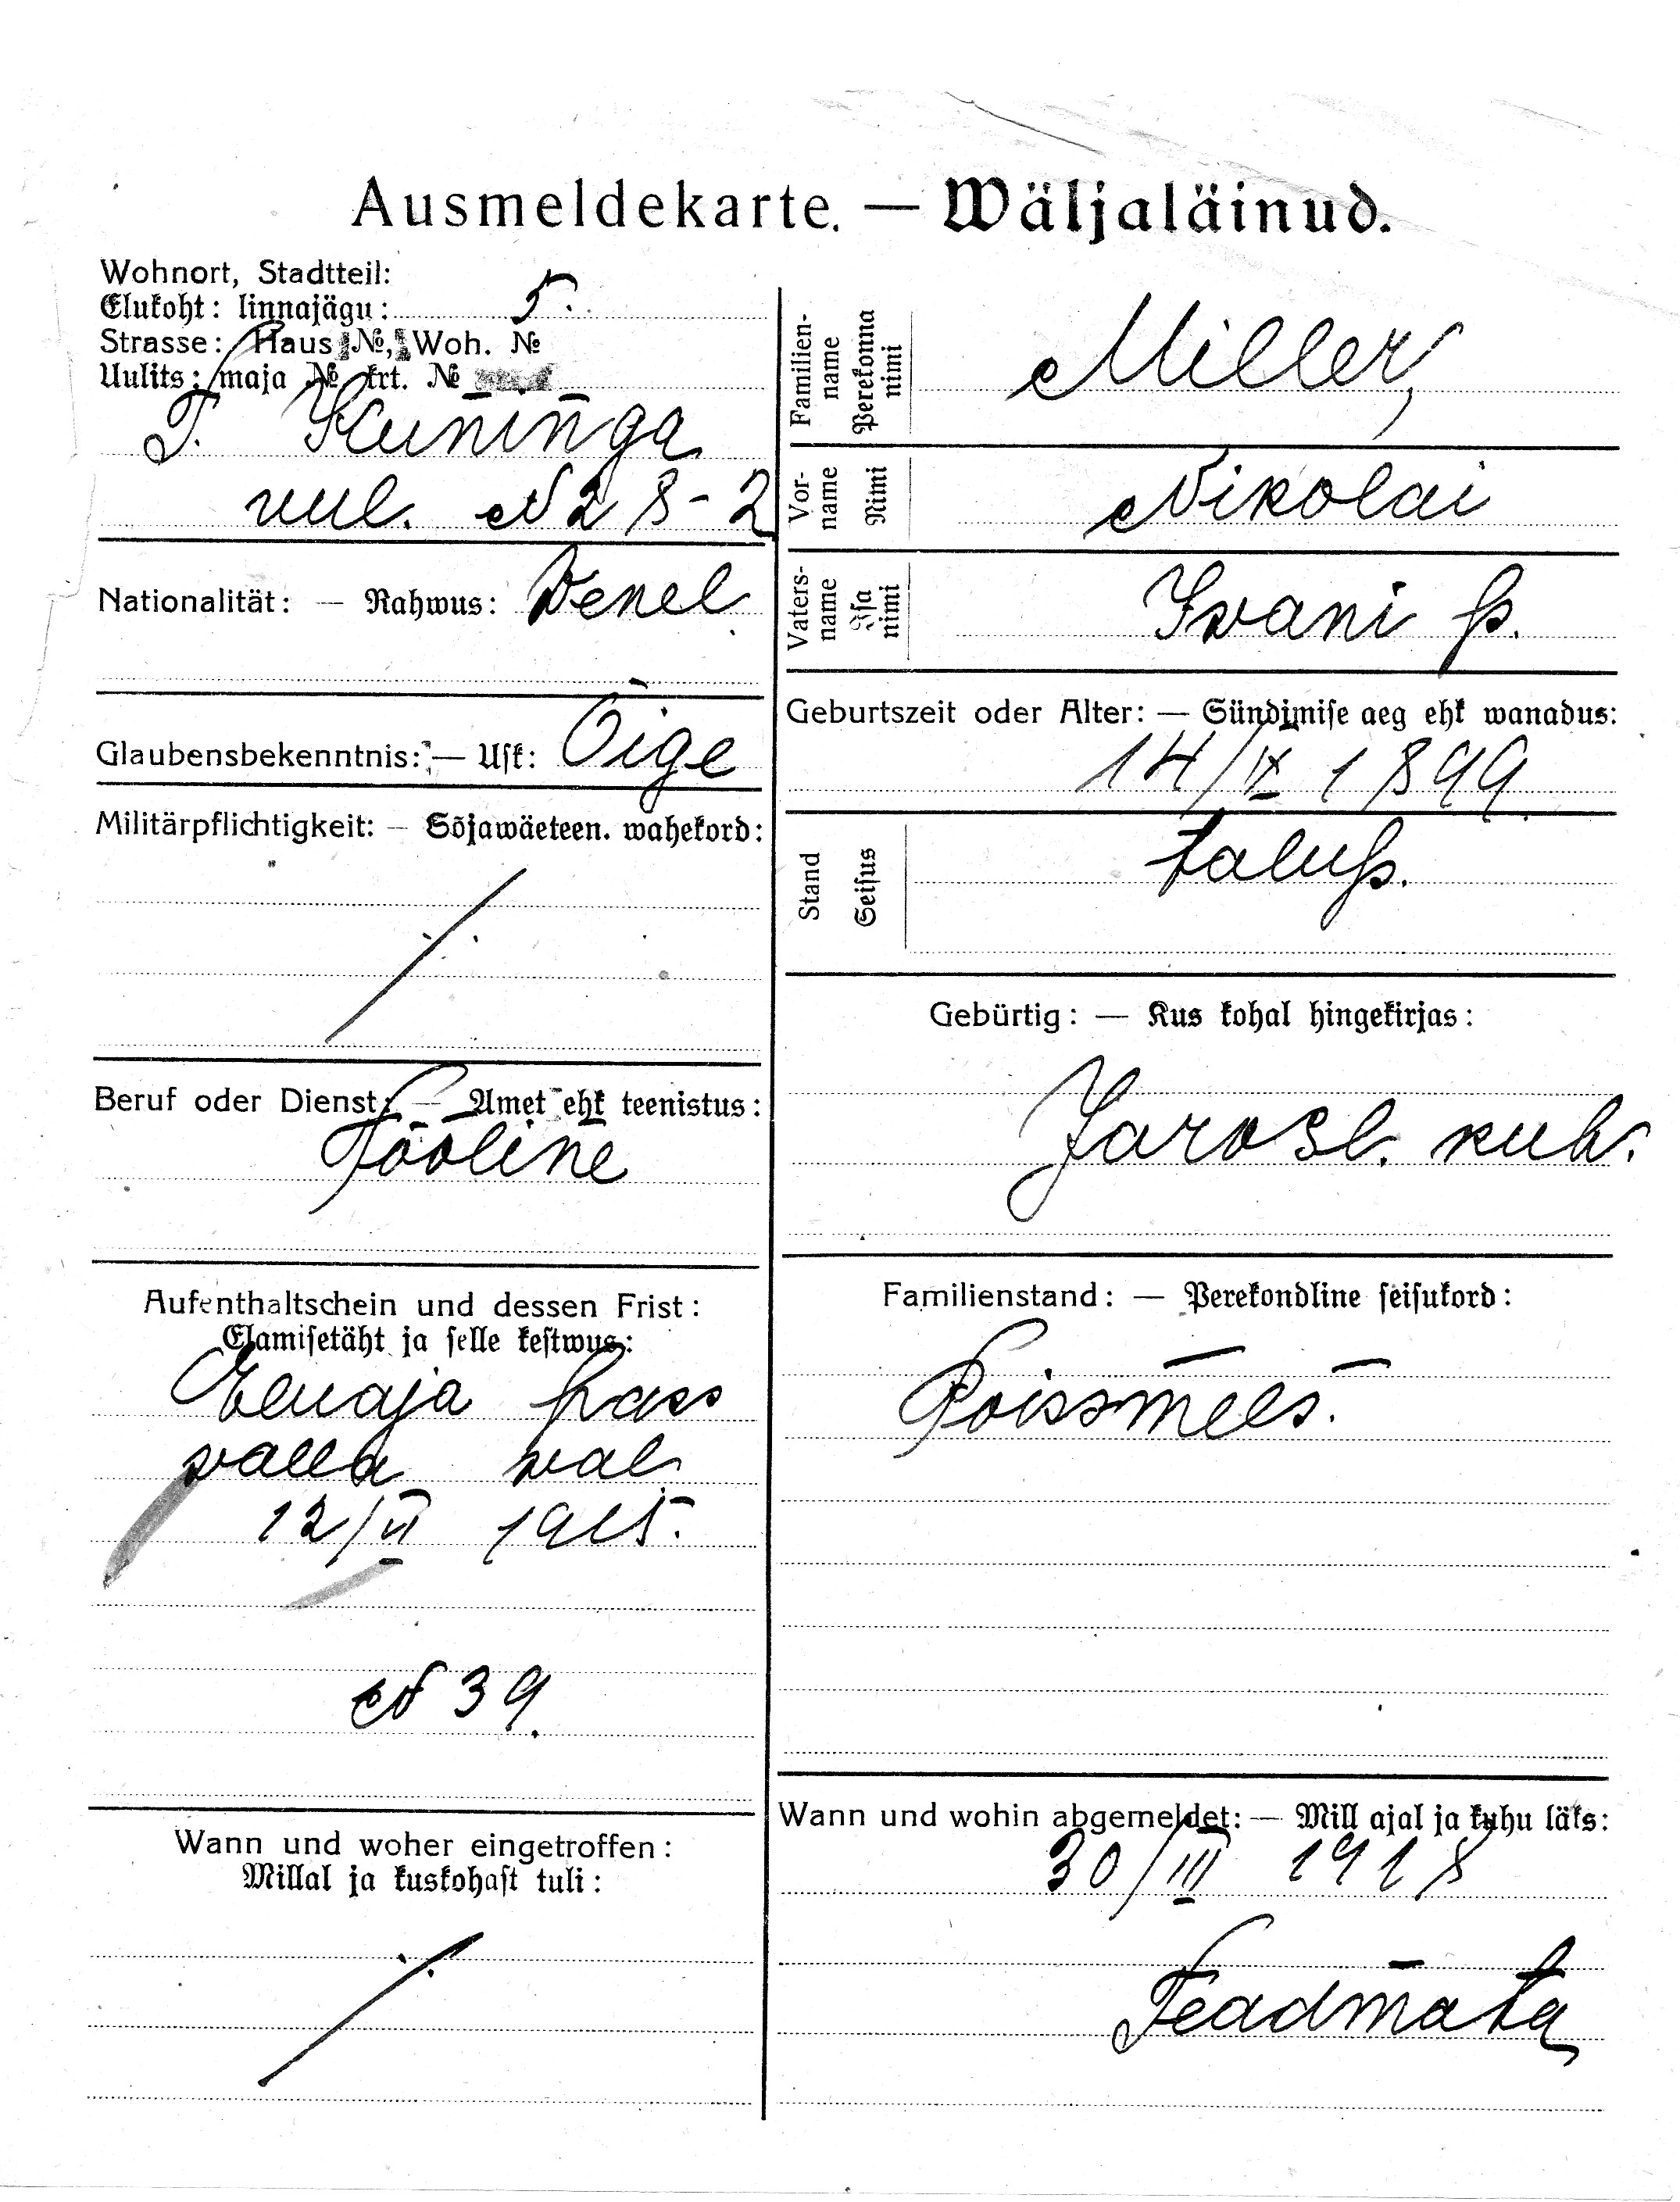 Ausmeldekarte. — Wäljaläinud.
Wohnort, Stadtteil:
Elukoht: linnajägu: 5.
Strasse: Haus №, Woh. №
Uulits: maja № krt. №
T. Kuninga
uul. № 28-2
Nationalität: — Rahwus: Venel.
Glaubensbekenntnis: — Usk: Õige
Militärpflichtigkeit: — Sõjawäeteen. wahekord:
Beruf oder Dienst: — Amet ehk teenistus:
Tööline
Aufenthaltschein und dessen Frist:
Elamisetäht ja selle kestwus:
Eluaja pass
valla val.
12/VI 1915.
№ 39.
Wann und woher eingetroffen:
Millal ja kuskohast tuli:
Familienname
Perekonna nimi
Miller,
Vorname
Nimi
Nikolai
Vatersname
Isa nimi
Ivani p.
Geburtszeit oder Alter: — Sündimise aeg ehk wanadus:
14/IX 1899
Stand
Seisus
talup.
Gebürtig: — Kus kohal hingekirjas:
Jarosl. kub.
Familienstand: — Perekondline seisukord:
Poissmees.
Wann und wohin abgemeldet: — Mill ajal ja kuhu läks:
30/III 1918
Teadmata